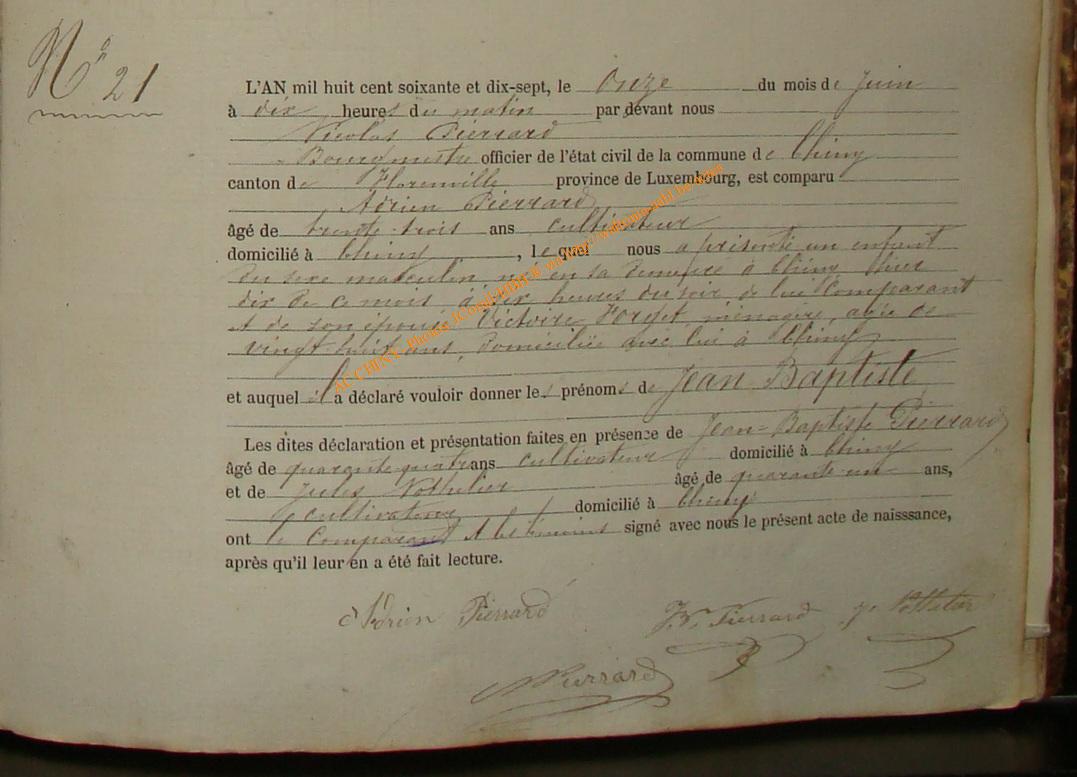 N° 21
L'AN mil huit cent soixante et dix-sept, le Onze du mois de Juin
à dix heures du matin par devant nous
Nicolas Pierrard
Bourgmestre officier de l'état civil de la commune de Chiny
canton de Florenville province de Luxembourg, est comparu
Adrien Pierrard
âgé de trente-trois ans cultivateur
domicilié à Chiny, lequel nous a présenté un enfant
du sexe masculin, né en sa demeure à Chiny, hier
dix de ce mois à dix heures du soir, de lui Comparant
et de son épouse Victoire Forget, ménagère, agée de
vingt-huit ans, domiciliée avec lui à Chiny
et auquel il a déclaré vouloir donner les prénoms de Jean Baptiste
Les dites déclaration et présentation faites en présence de Jean-Baptiste Pierrard
âgé de quarante-quatre ans cultivateur domicilié à Chiny
et de Jules âgé de quarante un ans,
cultivateur domicilié à Chiny
ont le Comparant et les témoins signé avec nous le présent acte de naisssance,
après qu'il leur en a été fait lecture.
Adrien Pierrard
Pierrard
Pierrard